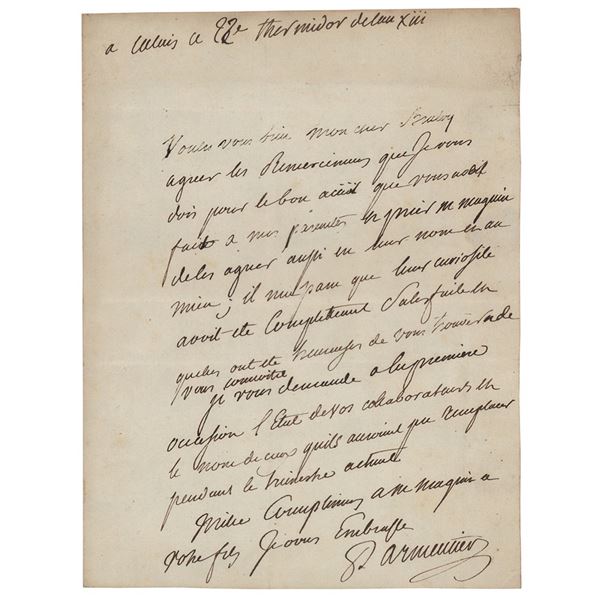 a calais ce 22e thermidor de lan xiii
Voulez vous bien Mon cher
agreer les Remercimens que Je vous
dois pour le bon acüil que vous avez
fait a mes parentes
de les agreer aussi en leur nom et au
mien; il me paru que leur curiosité
avoit ete Complettement Satisfaite et
quelles ont ete de vous trouver et de
vous connoitre
je vous demande a la premiere
occasion l'Etat de vos collaborateurs et
le nom de ceux quils auroient pu remplacer
pendant le trimestre actuel
Mille Complimens a
votre fils Je vous Embrasse
Parmentier